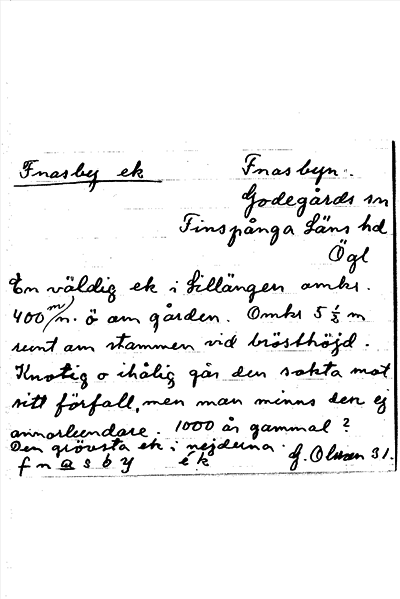 Fnasby ek
Fnasbyn.
Godegårds sn
Finspånga Läns hd
Ögl
En väldig ek i Lillängen omkr.
400 m/n. ö om gården. Omkr 5 1/2 m
runt om stammen vid brösthöjd.
Knotig o ihålig går den sakta mot
sitt förfall, men man minns den ej
annorlundare. 1000 år gammal?
Den grövsta ek i nejderna.
f n a s b y é k
G. Olsson 31.